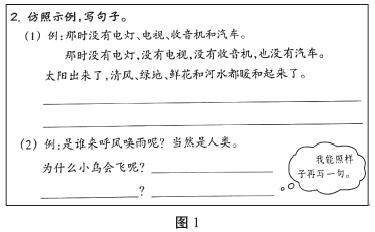 2. 仿照示例,写句子。
(1) 例:那时没有电灯、电视、收音机和汽车。
那时没有电灯,没有电视,没有收音机,也没有汽车。
太阳出来了,清风、绿地、鲜花和河水都暖和起来了。
(2) 例:是谁来呼风唤雨呢? 当然是人类。
为什么小鸟会飞呢?
?
我能照样
子再写一句。
图 1